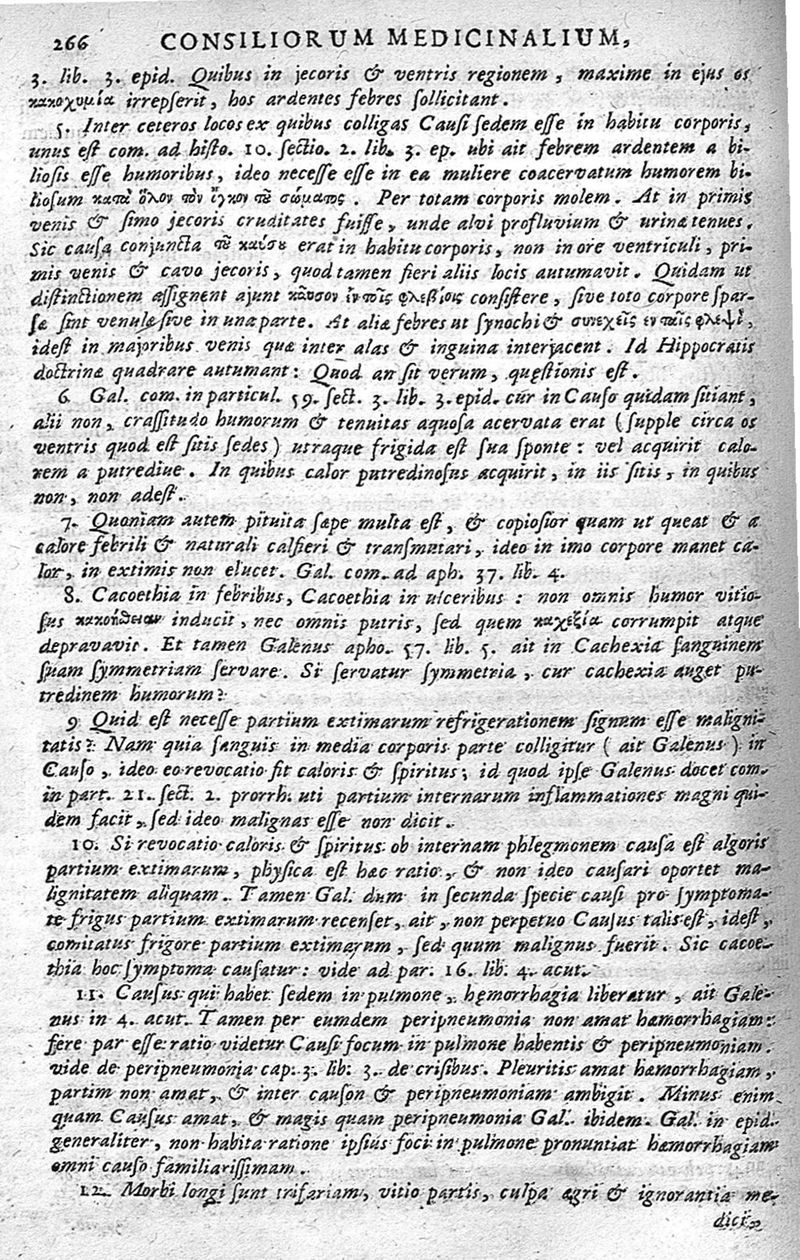 266 CONSILIORUM MEDICINALIUM,
3. lib. 3. epid. Quibus in jecoris & ventris regionem, maxime in ejus os
κακοχυμία irrepſerit, hos ardentes febres ſollicitant.
5. Inter ceteros locos ex quibus colligas Cauſi ſedem eſſe in habitu corporis,
unus eſt com. ad hiſto. 10. ſectio. 2. lib. 3. ep. ubi ait febrem ardentem a bi-
lioſis eſſe humoribus, ideo neceſſe eſſe in ea muliere coacervatum humorem bi-
lioſum κατὰ ὅλον τὸν ὄγκον τοῦ σώματος. Per totam corporis molem. At in primis
venis & ſimo jecoris cruditates fuiſſe, unde alvi profluvium & urinæ tenues.
Sic cauſa conjuncta τοῦ καύσου erat in habitu corporis, non in ore ventriculi, pri-
mis venis & cavo jecoris, quod tamen fieri aliis locis autumavit. Quidam ut
diſtinctionem aſſignent ajunt καῦσον ἐν τοῖς φλεβίοις conſiſtere, ſive toto corpore ſpar-
ſæ ſint venulæ ſive in una parte. At aliæ febres ut ſynochi & συνεχεῖς εν ταῖς φλεψὶ,
ideſt in majoribus venis quæ inter alas & inguina interjacent. Id Hippocratis
doctrinæ quadrare autumant: Quod an ſit verum, quęſtionis eſt.
6. Gal. com. in particul. 59. ſect. 3. lib. 3. epid. cur in Cauſo quidam ſitiant,
alii non, craſſitudo humorum & tenuitas aquoſa acervata erat (ſupple circa os
ventris quod eſt ſitis ſedes) utraque frigida eſt ſua ſponte: vel acquirit calo-
rem a putrediue. In quibus calor putredinoſus acquirit, in iis ſitis, in quibus
non, non adeſt.
7. Quoniam autem pituita ſæpe multa eſt, & copioſior quam ut queat & a
calore febrili & naturali calfieri & tranſmutari, ideo in imo corpore manet ca-
lor, in extimis non elucet. Gal. com. ad aph. 37. lib. 4.
8. Cacoethia in febribus, Cacoethia in ulceribus: non omnis humor vitio-
ſus κακοήθειαν inducit, nec omnis putris, ſed quem καχεξία corrumpit atque
depravavit. Et tamen Galenus apho. 57. lib. 5. ait in Cachexia ſanguinem
ſuam ſymmetriam ſervare. Si ſervatur ſymmetria, cur cachexia auget pu-
tredinem humorum?
9 Quid eſt neceſſe partium extimarum refrigerationem ſignum eſſe maligni-
tatis? Nam quia ſanguis in media corporis parte colligitur (ait Galenus) in
Cauſo, ideo eo revocatio fit caloris & ſpiritus; id quod ipſe Galenus docet com.
in part. 21. ſect. 2. prorrh. uti partium internarum inflammationes magni qui-
dem facit, ſed ideo malignas eſſe non dicit.
10. Si revocatio caloris & ſpiritus ob internam phlegmonem cauſa eſt algoris
partium extimarum, phyſica eſt hæc ratio, & non ideo cauſari oportet ma-
lignitatem aliquam. Tamen Gal. dum in ſecunda ſpecie cauſi pro ſymptoma-
te frigus partium extimarum recenſet, ait, non perpetuo Cauſus talis eſt, ideſt,
comitatus frigore partium extimarum, ſed quum malignus fuerit. Sic cacoe-
thia hoc ſymptoma cauſatur: vide ad par. 16. lib. 4. acut.
11. Cauſus qui habet ſedem in pulmone, hęmorrhagia liberatur, ait Gale-
nus in 4. acut. Tamen per eumdem peripneumonia non amat hæmorrhagiam:
fere par eſſe ratio videtur Cauſi focum in pulmone habentis & peripneumoniam.
vide de peripneumonia cap. 3. lib. 3. de criſibus. Pleuritis amat hæmorrhagiam,
partim non amat, & inter cauſon & peripneumoniam ambigit. Minus enim
quam Cauſus amat, & magis quam peripneumonia Gal. ibidem. Gal. in epid.
generaliter, non habita ratione ipſius foci in pulmone pronuntiat hæmorrhagiam
omni cauſo familiariſſimam.
12. Morbi longi ſunt trifariam, vitio partis, culpa ægri & ignorantia me-
dici,